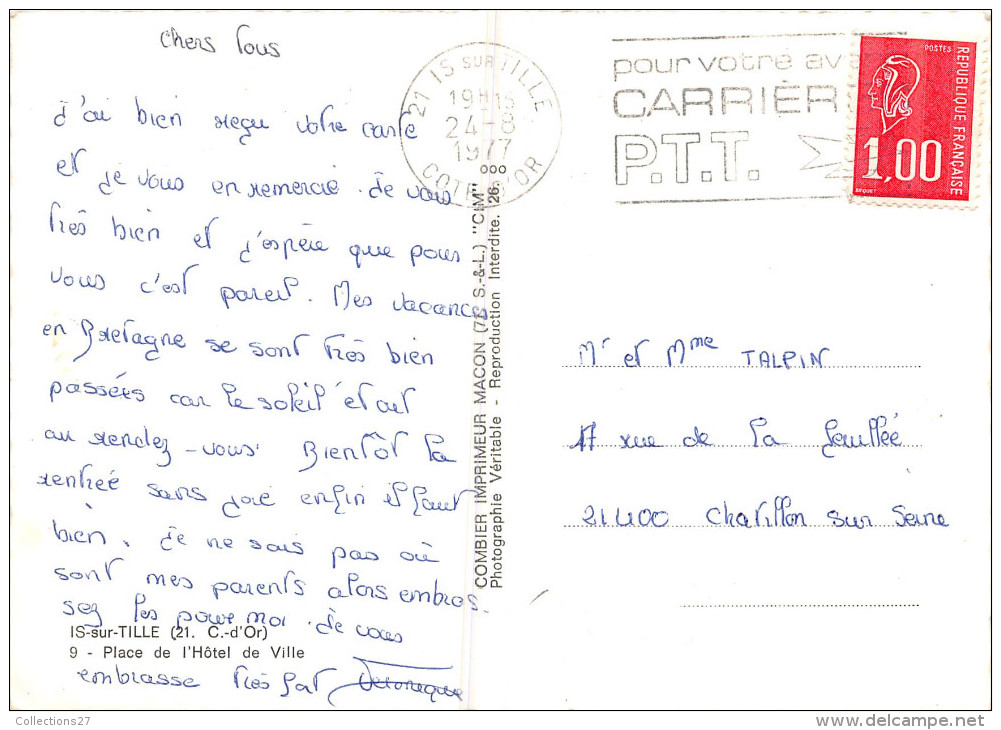 Chers Tous
J'ai bien reçu votre carte
et je vous en remercie. Je vais
très bien et j'espère que pour
vous c'est pareil. Mes vacances
en Bretagne se sont très bien
passées car le soleil était
au rendez-vous. Bientôt la
rentrée sans joie enfin il faut
bien. Je ne sais pas où
sont mes parents alors embras.
sez les pour moi. Je vous
embrasse très fort Véronique
IS-sur-TILLE (21. C.-d'Or)
9 - Place de l'Hôtel de Ville
21 IS SUR TILLE
19H15
24-8
1977
COTE D'OR
pour votre av
CARRIÈR
P.T.T.
POSTES
REPUBLIQUE FRANÇAISE
1,00
BEQUET
COMBIER IMPRIMEUR MACON (71 S.-&-L.) "CIM"
Photographie Véritable - Reproduction Interdite. 126.
Mr et Mme TALPIN
17 rue de la
21400 Chatillon sur Seine
Collections27
www.delcampe.net